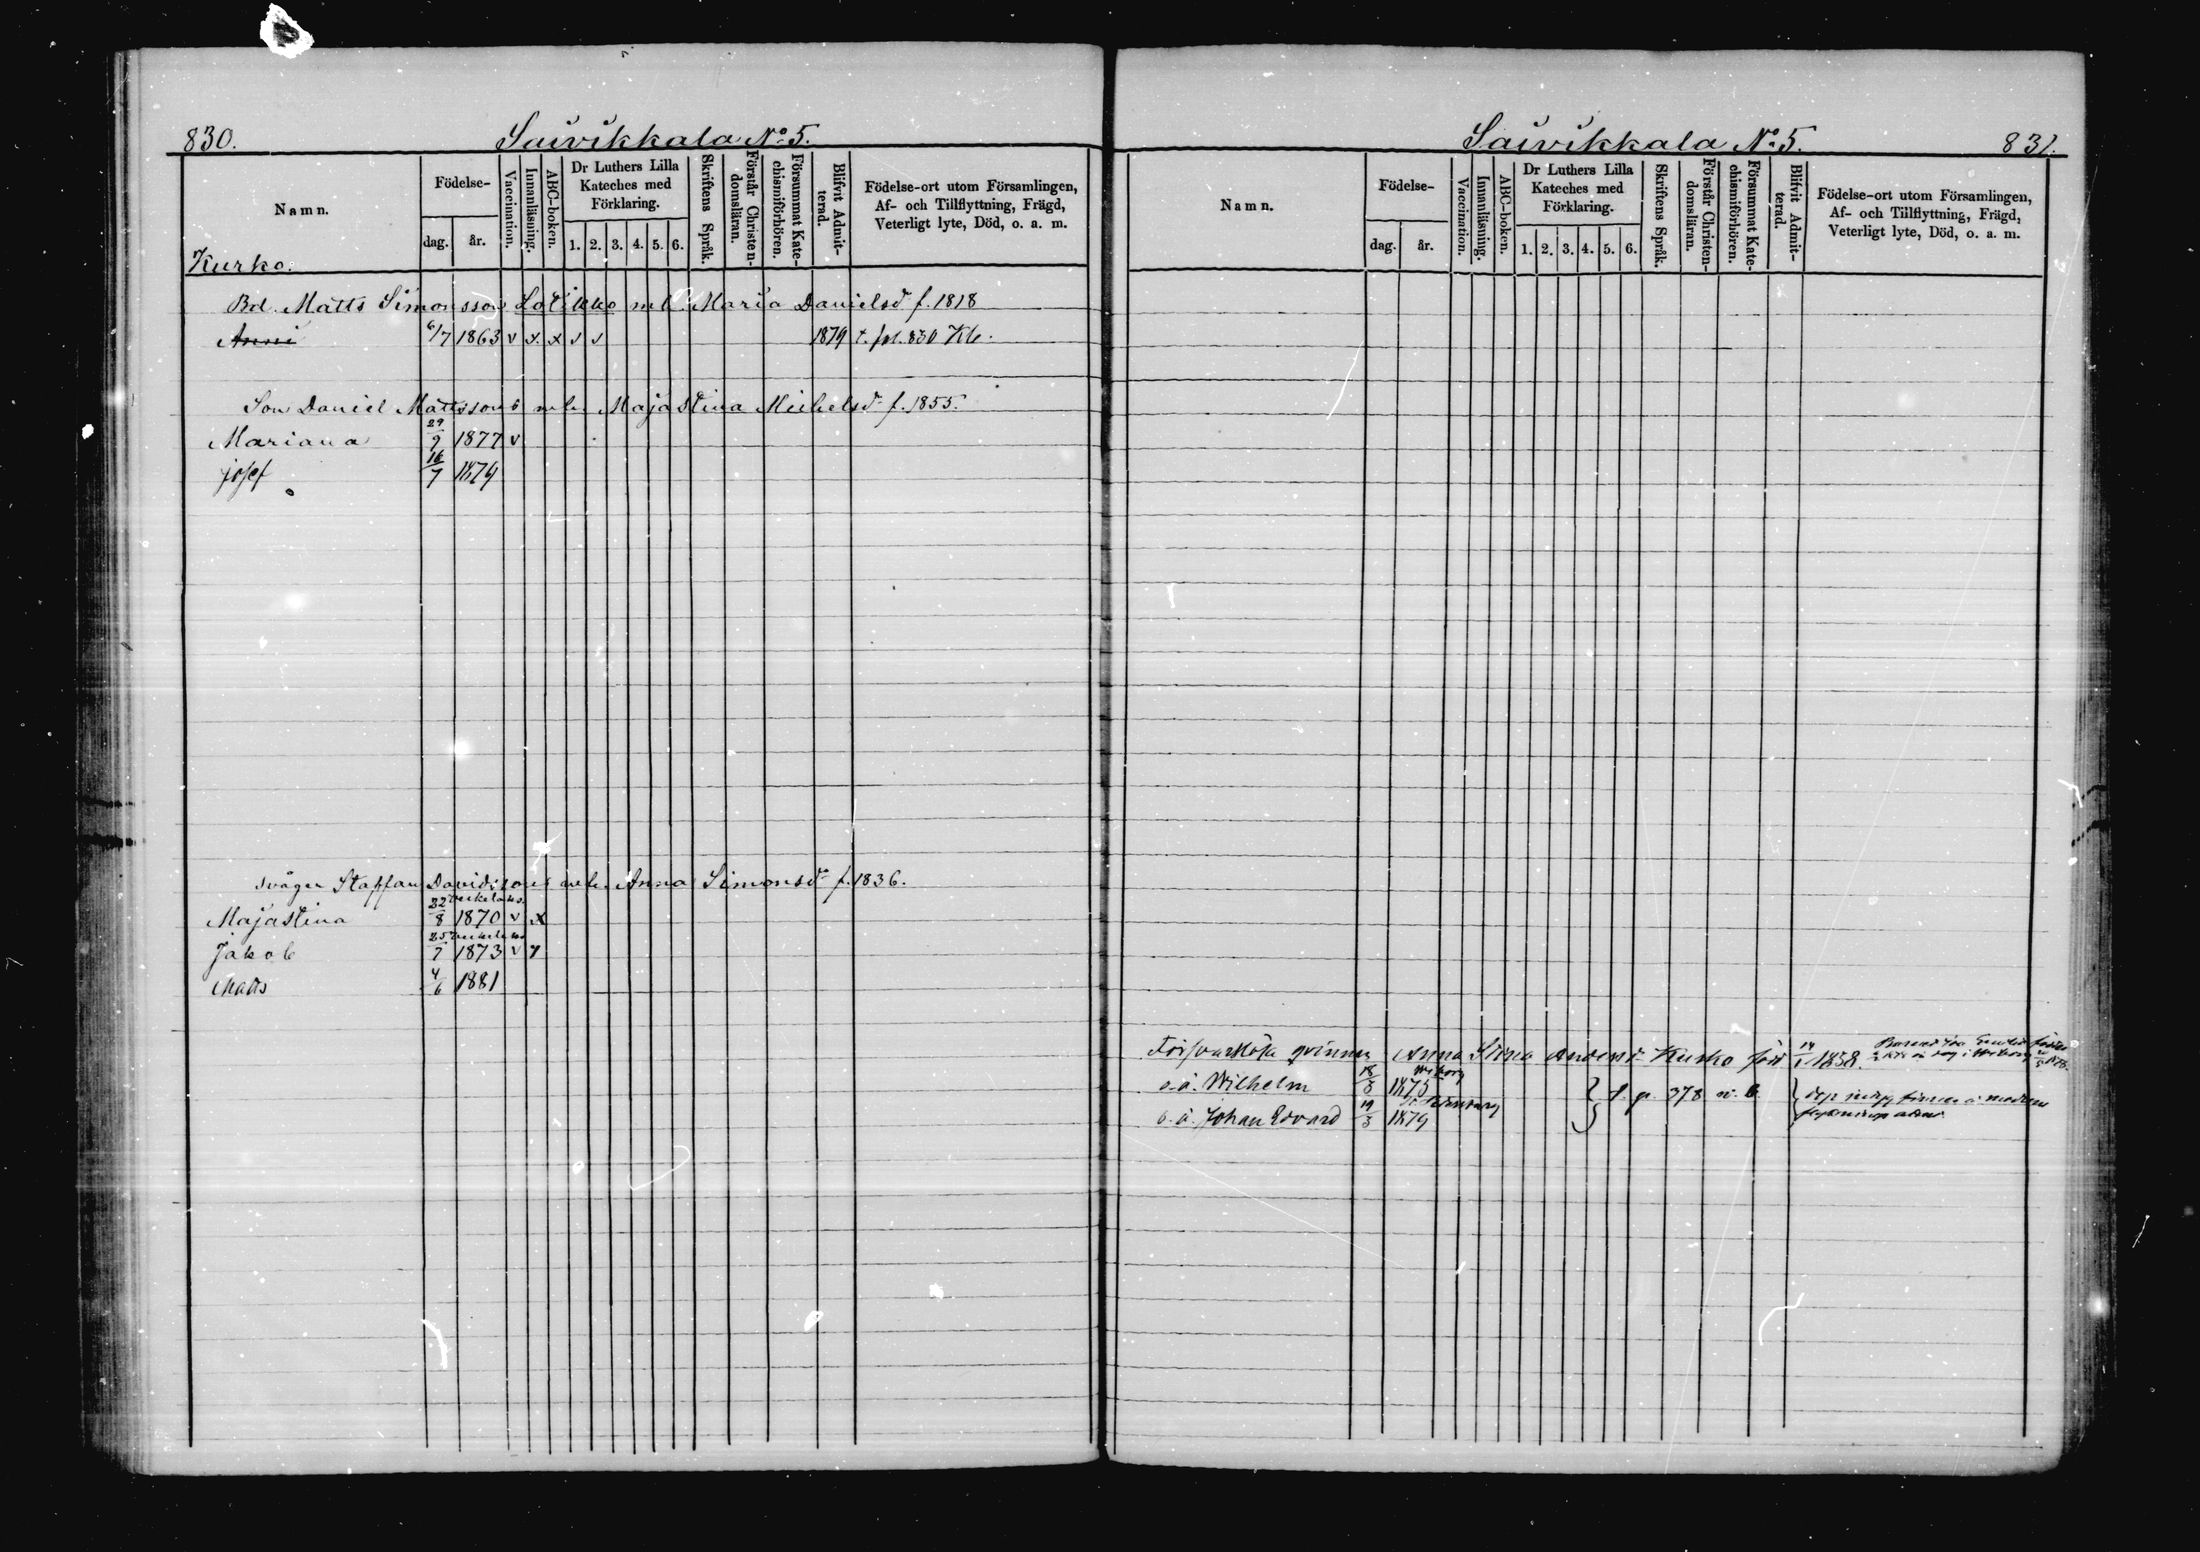 830. Saivikkala No 5.
Namn.
Födelse-
dag. år.
Vaccination.
Innanläsning.
ABC-boken.
Dr Luthers Lilla
Kateches med
Förklaring.
1. 2. 3. 4. 5. 6.
Skriftens Språk.
Förstår Christen-
domsläran.
Försummat Kate-
chismiförhören.
Blifvit Admit-
terad.
Födelse-ort utom Församlingen,
Af- och Tillflyttning, Frägd,
Veterligt lyte, Död, o. a. m.
Kurko.
Bd. Matts Simonsson Loikko m.h. Maria Danielsdr f. 1818
Anni 6/7 1863 v x x v v 1879 t. fol. 830 Kb.
Son Daniel Mattssons m.h. Majastina Michelsdr f. 1855.
Mariana 29/9 1877 v
Josef 16/7 1879
svåger Staffan Davidssons m.h. Anna Simonsdr f. 1836.
Majastina 22/8 1870 v x
Jakob 25/7 1873 v
Matts 4/6 1881
Saivikkala No 5. 831.
Namn.
Födelse-
dag. år.
Vaccination.
Innanläsning.
ABC-boken.
Dr Luthers Lilla
Kateches med
Förklaring.
1. 2. 3. 4. 5. 6.
Skriftens Språk.
Förstår Christen-
domsläran.
Försummat Kate-
chismiförhören.
Blifvit Admit-
terad.
Födelse-ort utom Församlingen,
Af- och Tillflyttning, Frägd,
Veterligt lyte, Död, o. a. m.
Försvarslösa qvinnan Anna Stina Andersdr Kurko född 1858.
o.ä. Wilhelm 18/8 1875 Wiborg
o.ä. Johan Edvard 19/3 1879 378